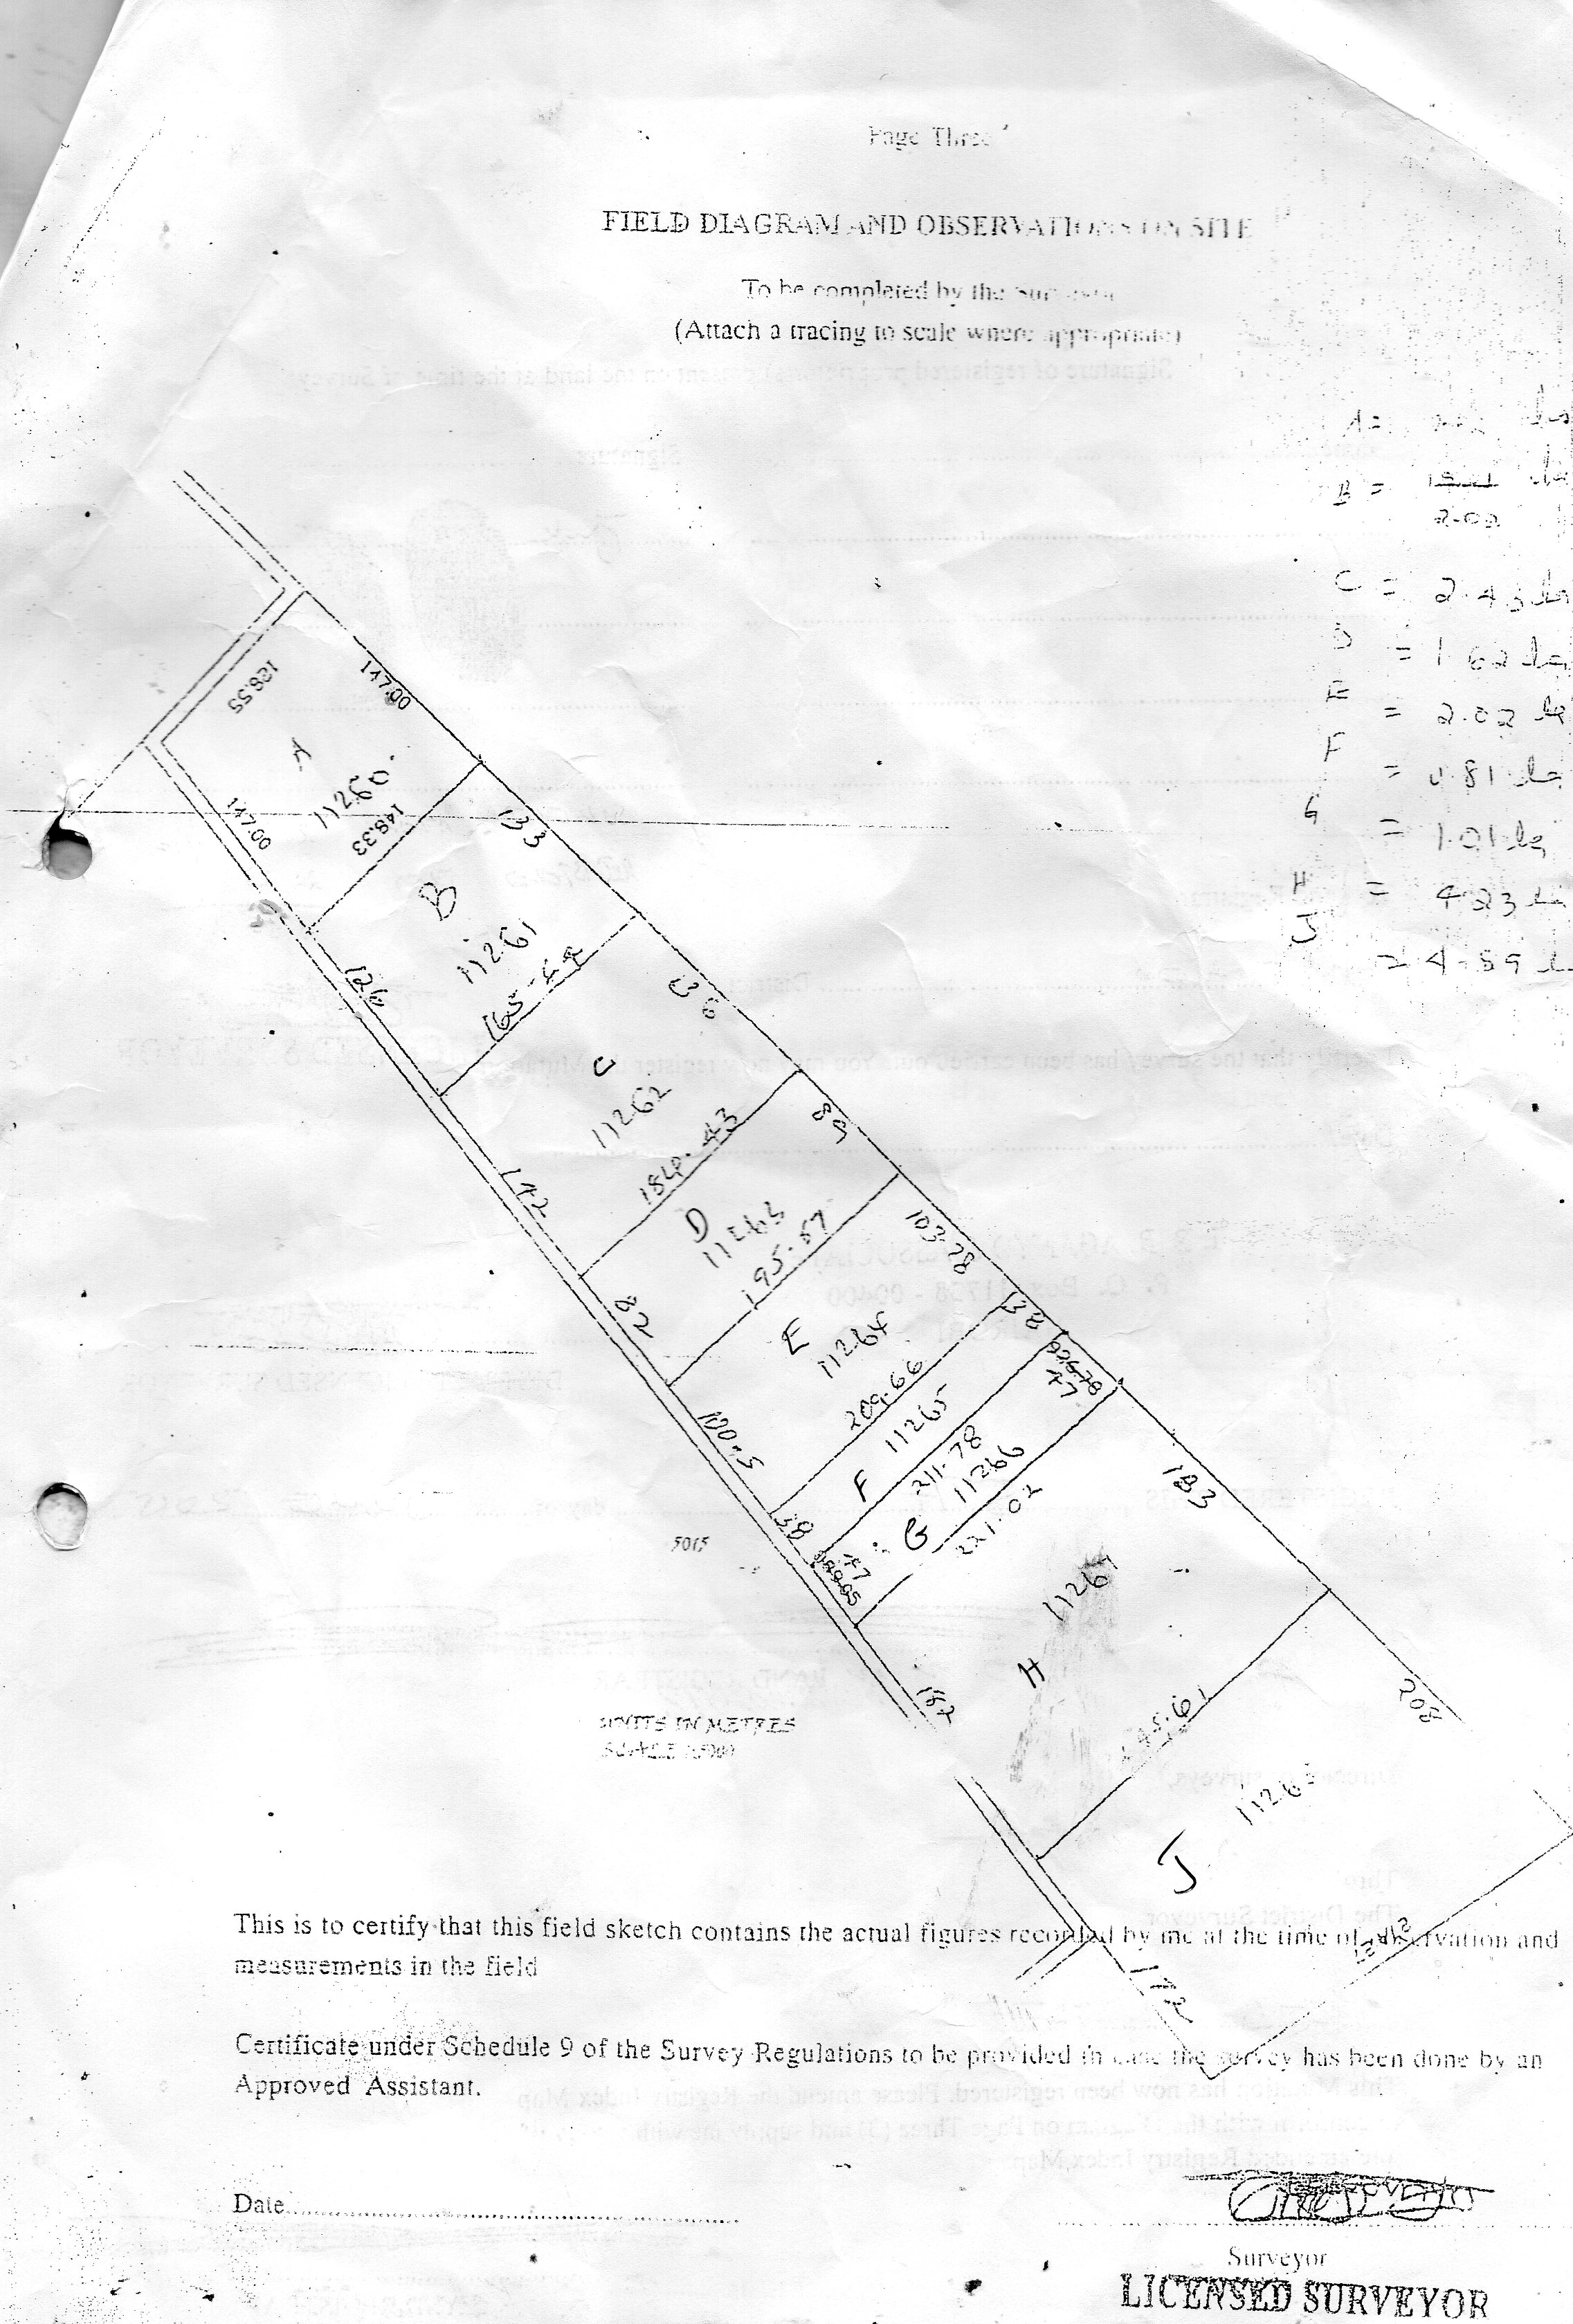 Page Three
FIELD DIAGRAM AND OBSERVATIONS ON SITE
To be completed by the
(Attach a tracing to scale where appropriate)
A =
B =
2.02
C = 2.43 ha
D = 1.62 ha
E = 2.02 ha
F = 0.81 ha
G = 1.01 ha
H = 4.23 ha
J = 4.89
128.55
147.00
A
11260
147.00
148.33
133
B
11261
126
165
136
C
11262
142
184.43
89
D
11263
82
195.57
103.78
E
11264
100.5
209.66
38
F
11265
38
211.78
47
G
11266
47
221.02
183
H
11267
182
208
J
5015
UNITS IN METRES
SCALE
This is to certify that this field sketch contains the actual figures recorded by me at the time of observation and
measurements in the field
Certificate under Schedule 9 of the Survey Regulations to be provided in case the survey has been done by an
Approved Assistant.
Date
Surveyor
LICENSED SURVEYOR